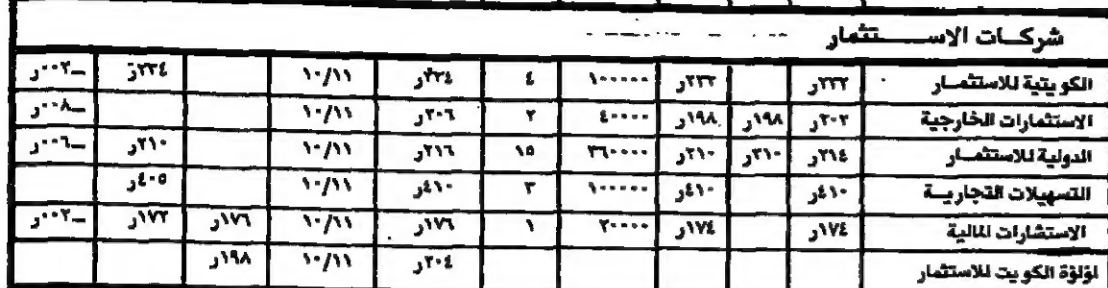 شركات الاستثمار
الكويتية للاستثمار ٢٣٢ر ٢٣٢ر ١٠٠٠٠٠ ٤ ٢٣٤ر ١٠/١١ ٢٣٤ر ــ٠٠٢ر
الاستثمارات الخارجية ٢٠٢ر ١٩٨ر ١٩٨ر ٤٠٠٠٠ ٢ ٢٠٦ر ١٠/١١ ــ٠٠٨ر
الدولية للاستثمار ٢١٤ر ٢١٠ر ٢١٠ر ٣٦٠٠٠٠ ١٥ ٢١٦ر ١٠/١١ ٢١٠ر ــ٠٠٦ر
التسهيلات التجارية ٤١٠ر ٤١٠ر ١٠٠٠٠٠ ٣ ٤١٠ر ١٠/١١ ٤٠٥ر
الاستشارات المالية ١٧٤ر ١٧٤ر ٢٠٠٠٠ ١ ١٧٦ر ١٠/١١ ١٧٦ر ١٧٢ر ــ٠٠٢ر
لؤلؤة الكويت للاستثمار ٢٠٤ر ١٠/١١ ١٩٨ر